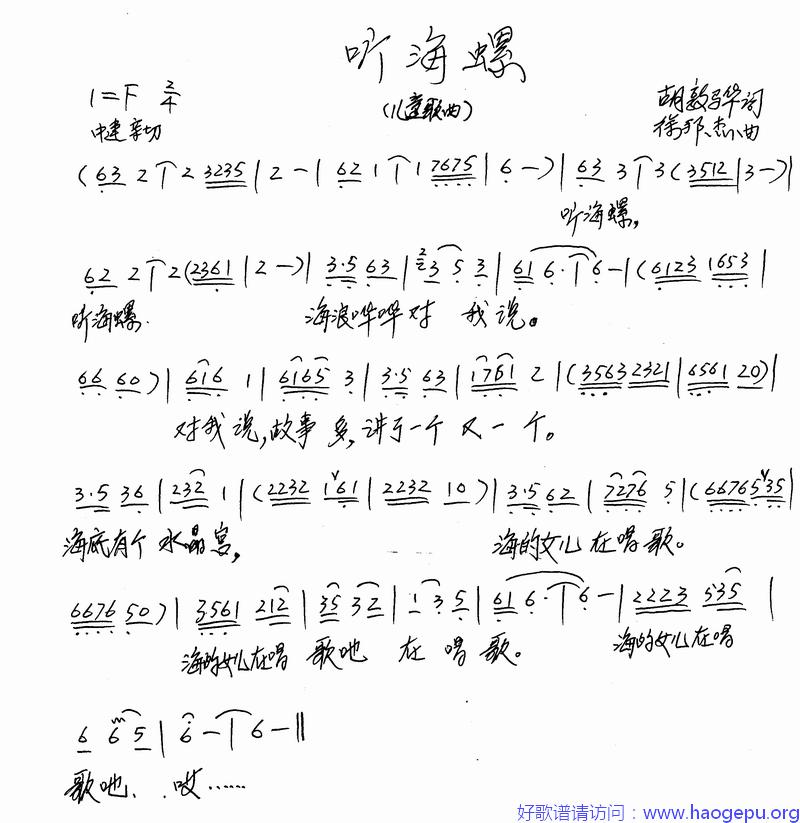 听海螺
1=F 2/4
(儿童歌曲)
中速亲切
胡敦骅词
曲
(63 2 | 2 3235 | 2 — | 62 1 | 1 7675 | 6 —) | 63 3 | 3 (3512 | 3 —) |
听海螺,
62 2 | 2 (2361 | 2 —) | 3·5 63 | 3 5 3 | 61 6· | 6 — | (6123 1653 |
听海螺. 海浪哗哗对 我 说。
66 60) | 616 1 | 6165 3 | 3·5 63 | 1761 2 | (3563 2321 | 6561 20) |
对我 说,故事 多,讲了一个 又 一 个。
3·5 36 | 232 1 | (2232 161 | 2232 10) | 3·5 62 | 7276 5 | (66765 35 |
海底有个 水晶宫, 海的女儿 在唱 歌。
6676 50) | 3561 212 | 35 32 | 1 3 5 | 61 6· | 6 — | 2223 535 |
海的女儿在唱 歌吔 在 唱 歌。 海的女儿在唱
6 6 5 | 6 — | 6 — ||
歌吔、 哎……
好歌谱请访问：www.haogepu.org